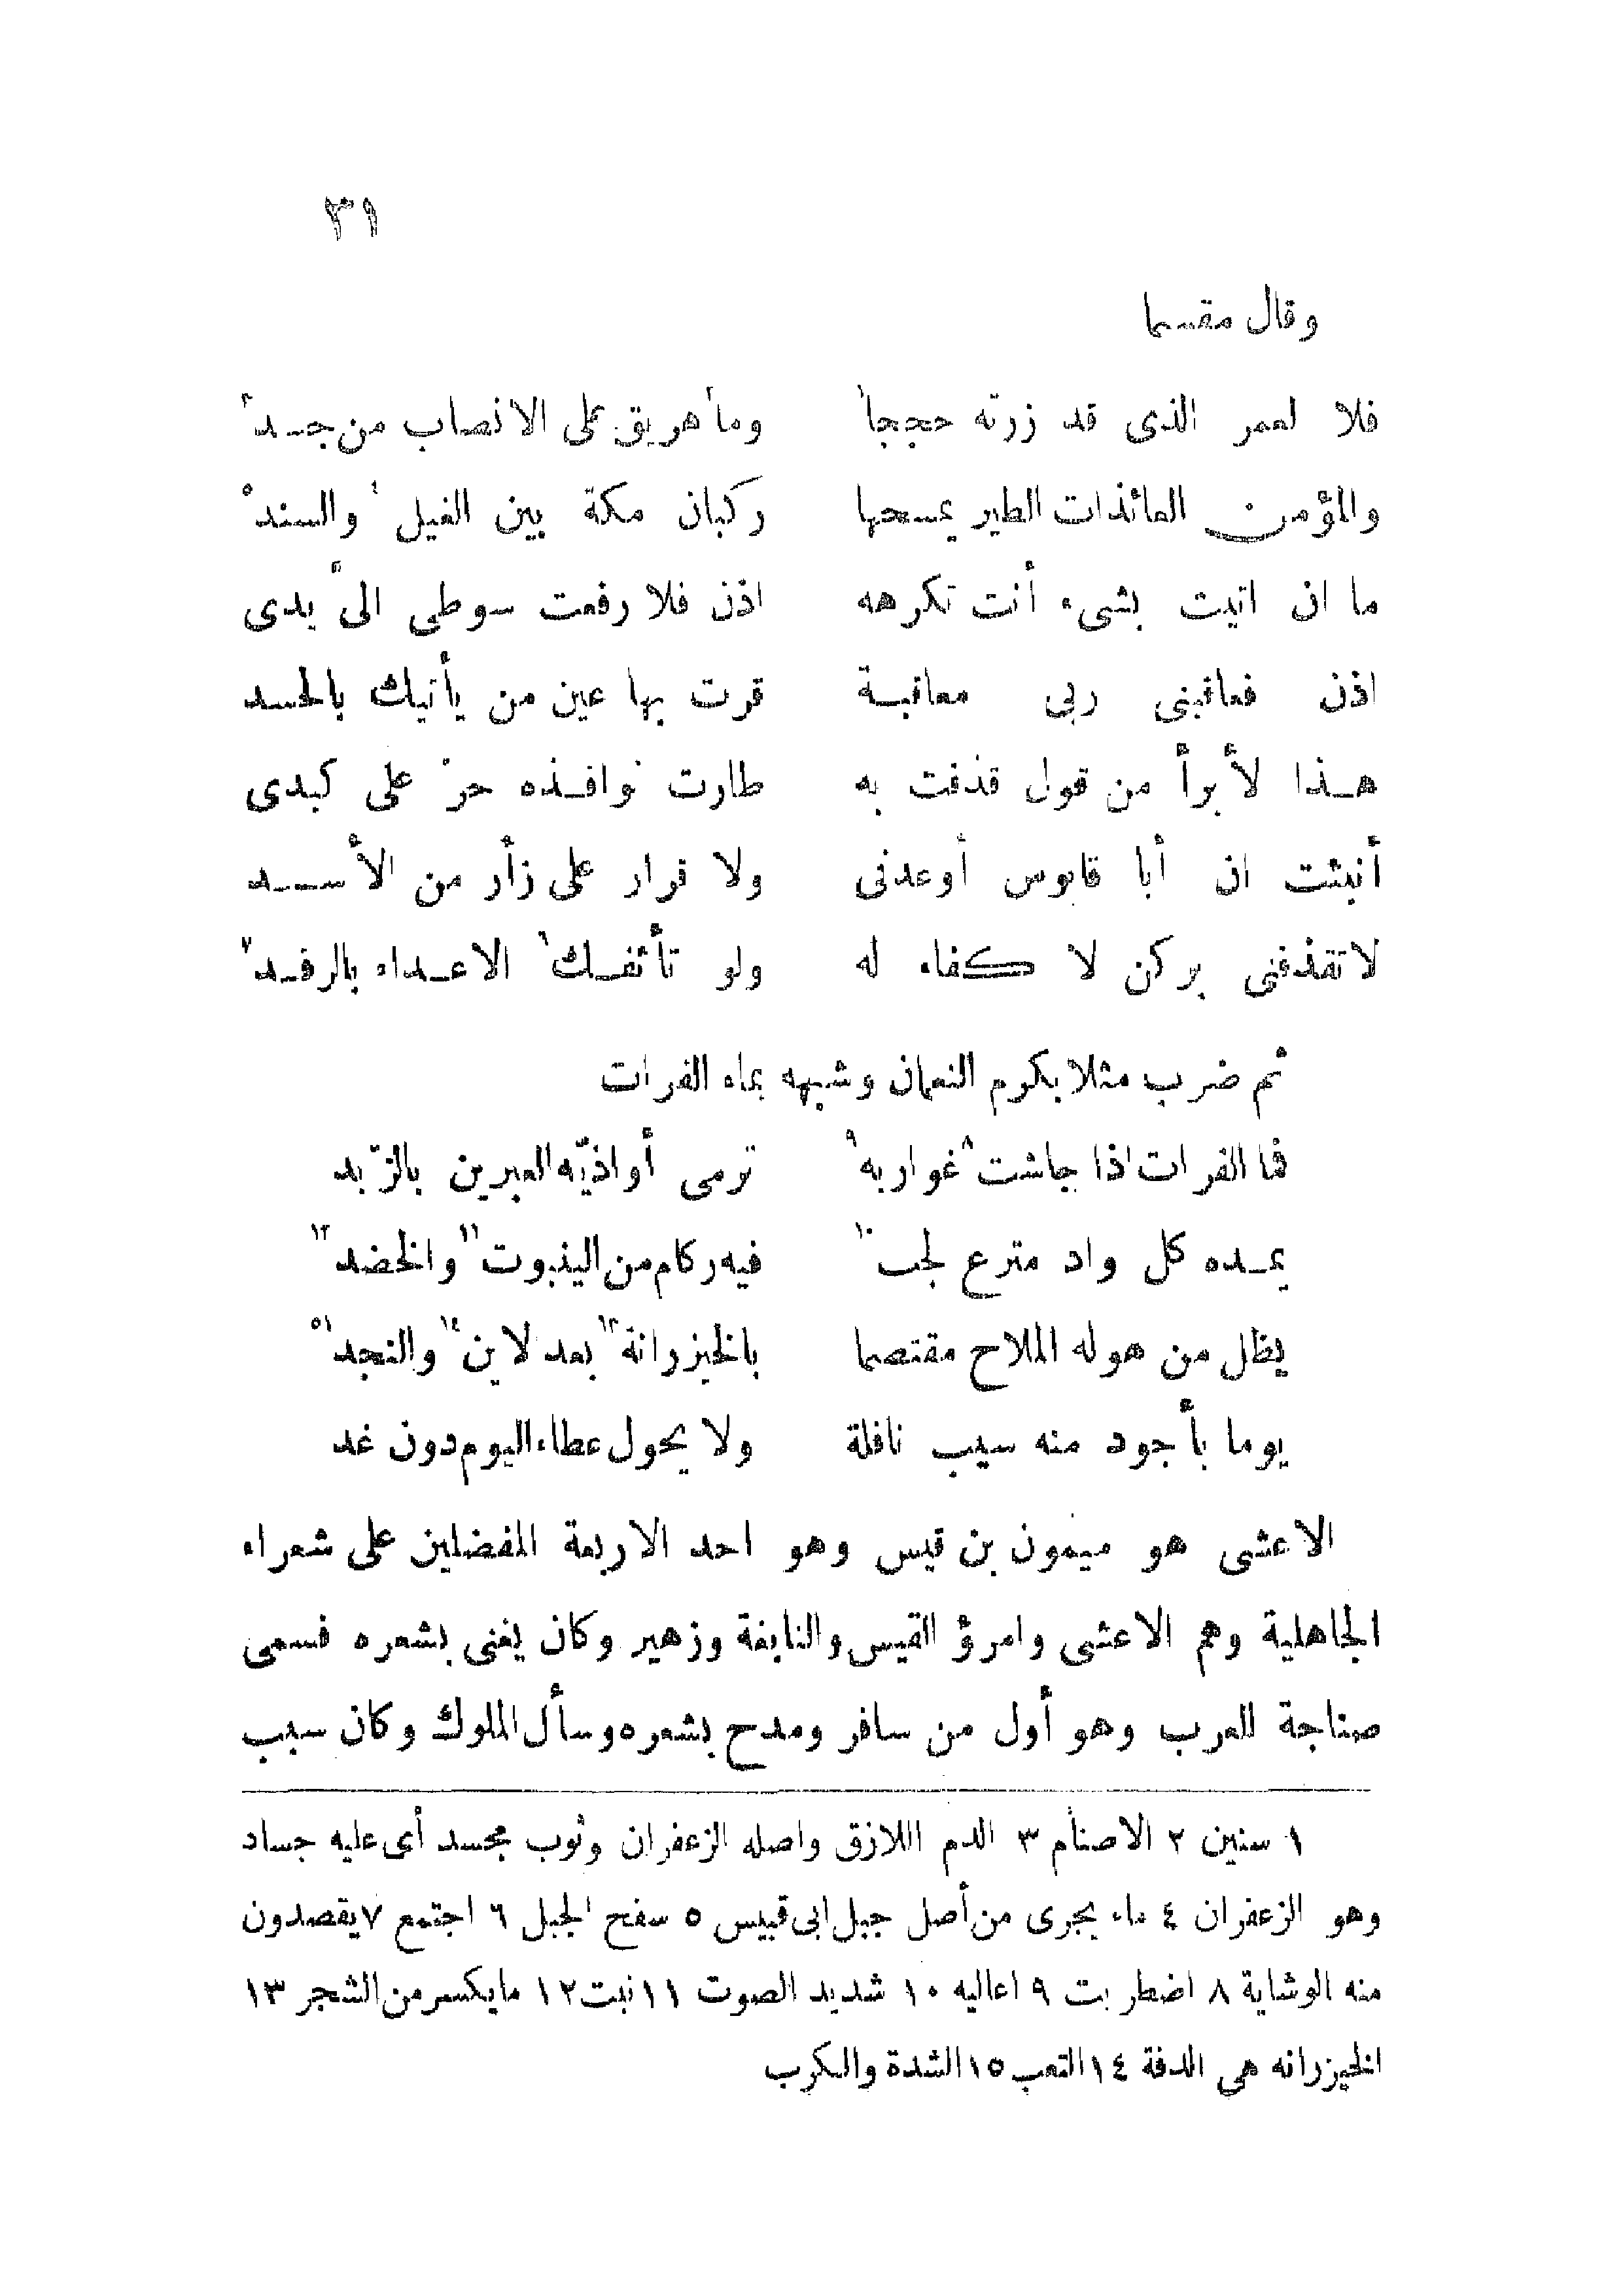 ٣١
وقال مقسما
فلا لعمر الذى قد زرته حججا١ وما هريق على الانصاب٢ من جسد٣
والمؤمن العائذات الطير يمسحها ركبان مكة بين الغيل٤ والسند٥
ما ان اتيت بشىء أنت تكرهه اذن فلا رفعت سوطى الىّ يدى
اذن فعاقبنى ربى معاقبة قرت بها عين من يأتيك بالحسد
هـذا لأبرأ من قول قذفت به طارت نوافـذه حرّ على كبدى
أنبئت ان أبا قابوس أوعدنى ولا قرار على زأر من الأسـد
لا تقذفنى بركن لا كفاء له ولو تأثفـك٦ الاعـداء بالرفـد٧
ثم ضرب مثلا بكرم النعمان وشبهه بماء الفرات
فما الفرات اذا جاشت٨ غواربه٩ ترمى أواذيّه العبرين بالزّبد
يمـده كل واد مترع لجب١٠ فيه ركام من الينبوت١١ والخضد١٢
يظل من هوله الملاح مقتصما بالخيزرانة١٣ بعد لاين١٤ والنجد١٥
يوما بأجود منه سيب نافلة ولا يحول عطاء اليوم دون غد
الاعشى هو ميمون بن قيس وهو احد الاربعة المفضلين على شعراء
الجاهلية وهم الاعشى وامرؤ القيس والنابغة وزهير وكان يغنى بشعره فسمى
صناجة للعرب وهو أول من سافر ومدح بشعره وسأل الملوك وكان سبب
١ سنين ٢ الاصنام ٣ الدم اللازق واصله الزعفران وثوب مجسد أى عليه جساد
وهو الزعفران ٤ ماء يجرى من أصل جبل ابى قبيس ٥ سفح الجبل ٦ اجتمع ٧ يقصدون
منه الوشاية ٨ اضطربت ٩ اعاليه ١٠ شديد الصوت ١١ نبت ١٢ ما يكسر من الشجر ١٣
الخيزرانه هى الدفة ١٤ التعب ١٥ الشدة والكرب